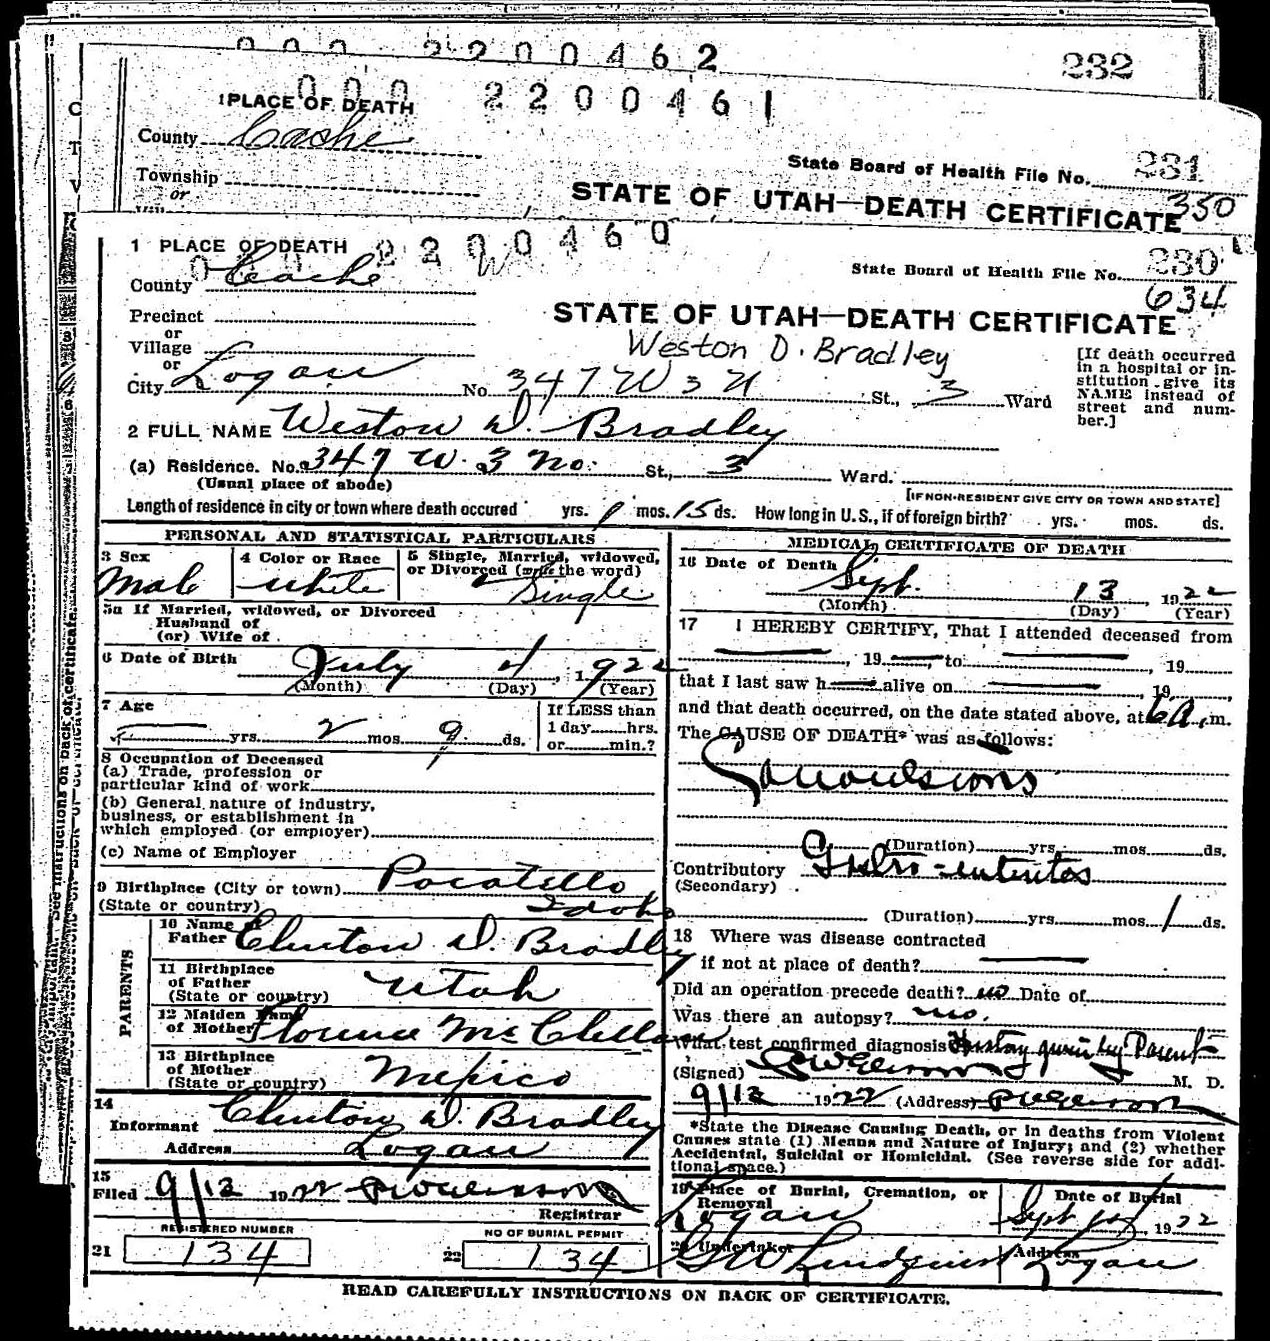 000 2200462
232
000 2200461
1 PLACE OF DEATH
County Cache
State Board of Health File No. 231
Township
or
350
STATE OF UTAH—DEATH CERTIFICATE
000 2200460
1 PLACE OF DEATH
County Cache
State Board of Health File No. 230
634
Precinct
or
Village
or
STATE OF UTAH—DEATH CERTIFICATE
Weston D. Bradley
[If death occurred in a hospital or institution give its NAME instead of street and number.]
City Logan No. 347 W 3 N St., 3 Ward
2 FULL NAME Weston D. Bradley
(a) Residence. No. 347 W. 3 No. St., 3 Ward.
(Usual place of abode)
[IF NON-RESIDENT GIVE CITY OR TOWN AND STATE]
Length of residence in city or town where death occured yrs. 1 mos. 15 ds. How long in U.S., if of foreign birth? yrs. mos. ds.
PERSONAL AND STATISTICAL PARTICULARS
3 Sex Male
4 Color or Race White
5 Single, Married, widowed, or Divorced (write the word) Single
5a If Married, widowed, or Divorced
Husband of
(or) Wife of
6 Date of Birth July 4, 1922
(Month) (Day) (Year)
7 Age
yrs. 2 mos. 9 ds.
If LESS than
1 day hrs.
or min.?
8 Occupation of Deceased
(a) Trade, profession or
particular kind of work
(b) General nature of industry,
business, or establishment in
which employed (or employer)
(c) Name of Employer
9 Birthplace (City or town) Pocatello,
(State or country) Idaho
PARENTS
10 Name of
Father Clinton D. Bradley
11 Birthplace
of Father
(State or country) Utah
12 Maiden Name
of Mother Florence McClellan
13 Birthplace
of Mother
(State or country) Mexico
14
Informant Clinton D. Bradley
Address Logan
15
Filed 9/13 1922
Registrar
REGISTERED NUMBER
21 134
NO OF BURIAL PERMIT
22 134
MEDICAL CERTIFICATE OF DEATH
16 Date of Death Sept. 13 1922
(Month) (Day) (Year)
17 I HEREBY CERTIFY, That I attended deceased from
, 19 , to , 19
that I last saw h alive on , 19 ,
and that death occurred, on the date stated above, at 6 a. m.
The CAUSE OF DEATH* was as follows:
Convulsions
(Duration) yrs. mos. ds.
Contributory
(Secondary)
(Duration) yrs. mos. 1 ds.
18 Where was disease contracted
if not at place of death?
Did an operation precede death? no Date of
Was there an autopsy? no.
What test confirmed diagnosis History given by Parents
(Signed) M. D.
9/13 1922 (Address)
*State the Disease Causing Death, or in deaths from Violent
Causes state (1) Means and Nature of Injury; and (2) whether
Accidental, Suicidal or Homicidal. (See reverse side for additional space.)
19 Place of Burial, Cremation, or
Removal Logan
Date of Burial
Sept 1922
20 Undertaker
G W Lindquist
Address
Logan
READ CAREFULLY INSTRUCTIONS ON BACK OF CERTIFICATE.